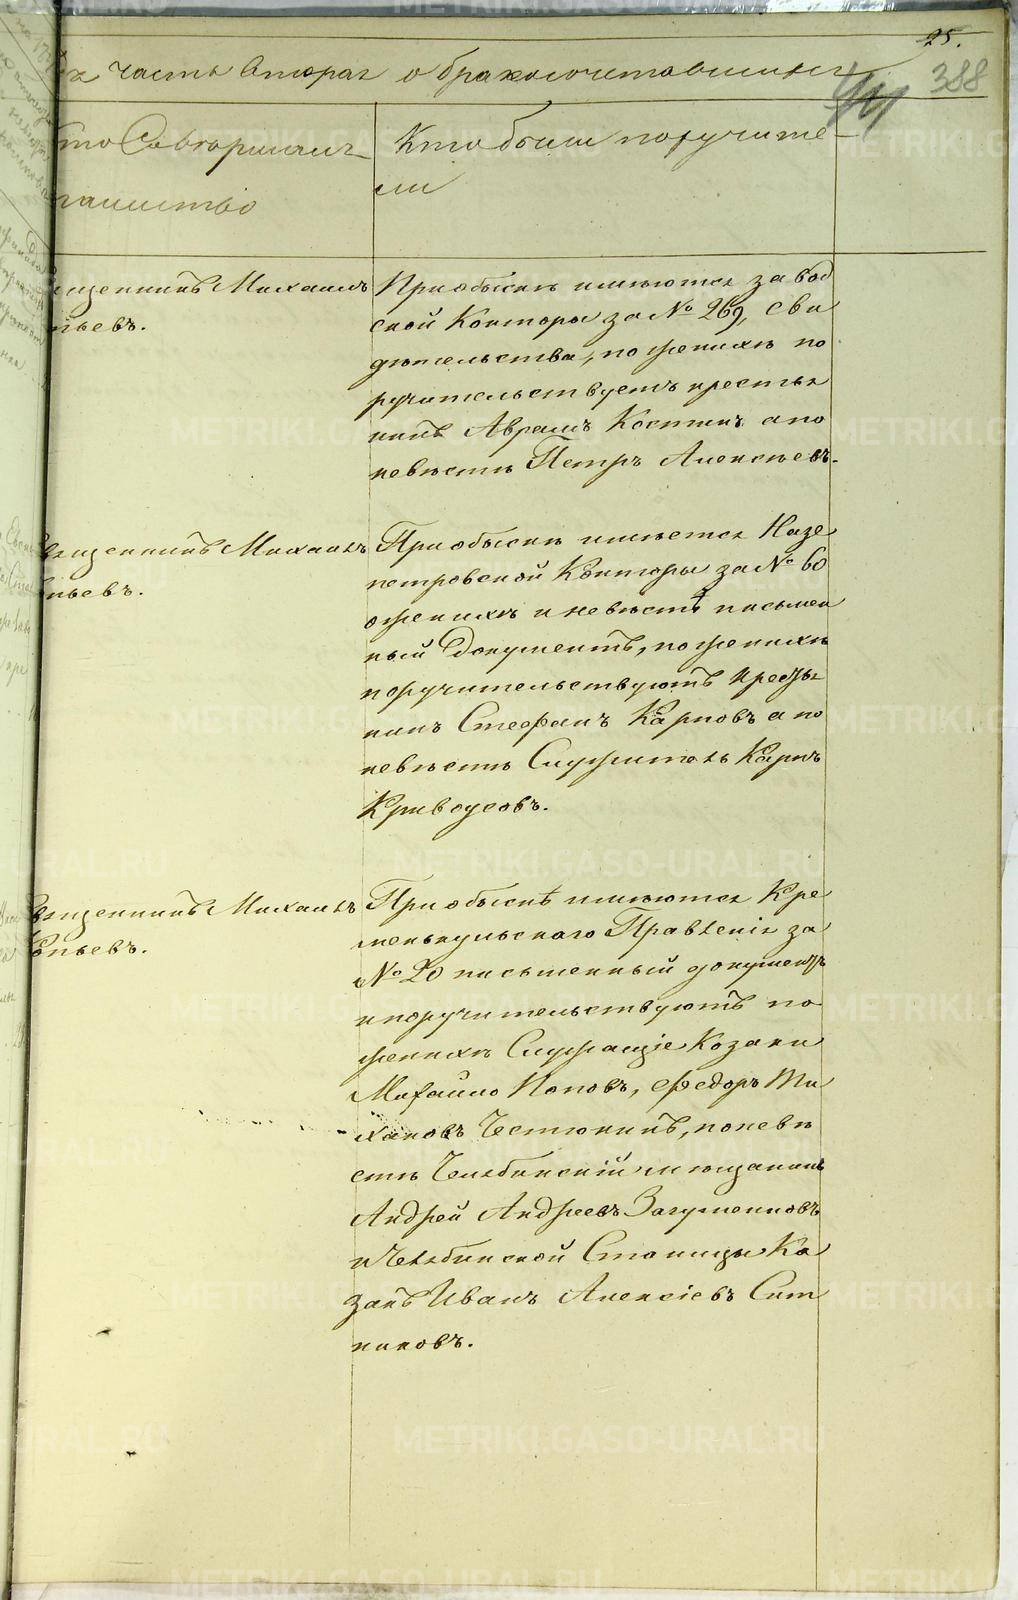 25.
388
часть вторая о бракосочетавшихся
Кто были поручите
ли
Священникъ Михаилъ
При обыскѣ имѣются завод
ской Конторы за № 269, сви
дѣтельства, по женихѣ по
ручительствуетъ крестья
нинъ Аврамъ Костинъ а по
невѣстѣ Петръ Алексѣевъ.
Священникъ Михаилъ
При обыскѣ имѣется Назе
петровской Конторы за № 60
о женихѣ и невѣстѣ письмен
ный Документъ, по женихѣ
поручительствуютъ крестья
нинъ Стефанъ Карповъ а по
невѣстѣ Служитель Карпъ
Кривоусовъ.
Священникъ Михаилъ
При обыскѣ имѣются Кре
менькульскаго Правленія за
№ 20 письменный документъ
и поручительствуютъ по
женихѣ Служащіе Козаки
Михайло Поповъ, Федоръ Ти
хановъ Честюнинъ, по невѣ
стѣ Челябинскій мѣщанинъ
Андрей Андреевъ Загуменновъ
и Челябинской Станицы Ка
закъ Иванъ Алексіевъ Сит
никовъ.
METRIKI.GASO-URAL.RU